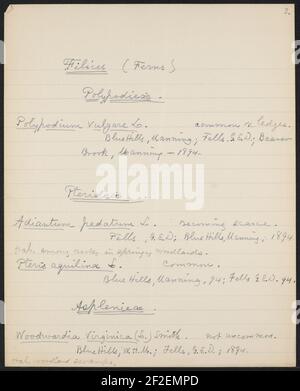 2.
Filices (Ferns)
Polypodieæ.
Polypodium vulgare L. common on ledges.
Blue Hills, Manning; Fells. G.E.D.; Beaver
Brook, Manning - 1894.
Pterideæ
Adiantum pedatum L. becoming scarce.
Fells, G.E.D; Blue Hills, Manning. 1894
hab. among rocks in springy woodlands.
Pteris aquilina L. common.
Blue Hills, Manning, 94; Fells G.E.D. 94.
Asplenieæ
Woodwardia Virginica (L.) Smith. not uncommon.
Blue Hills, W.H.M.; Fells, G.E.D; 1894.
wet woodland swamps.
alamy
Image ID: 2F2EMPD
www.alamy.com